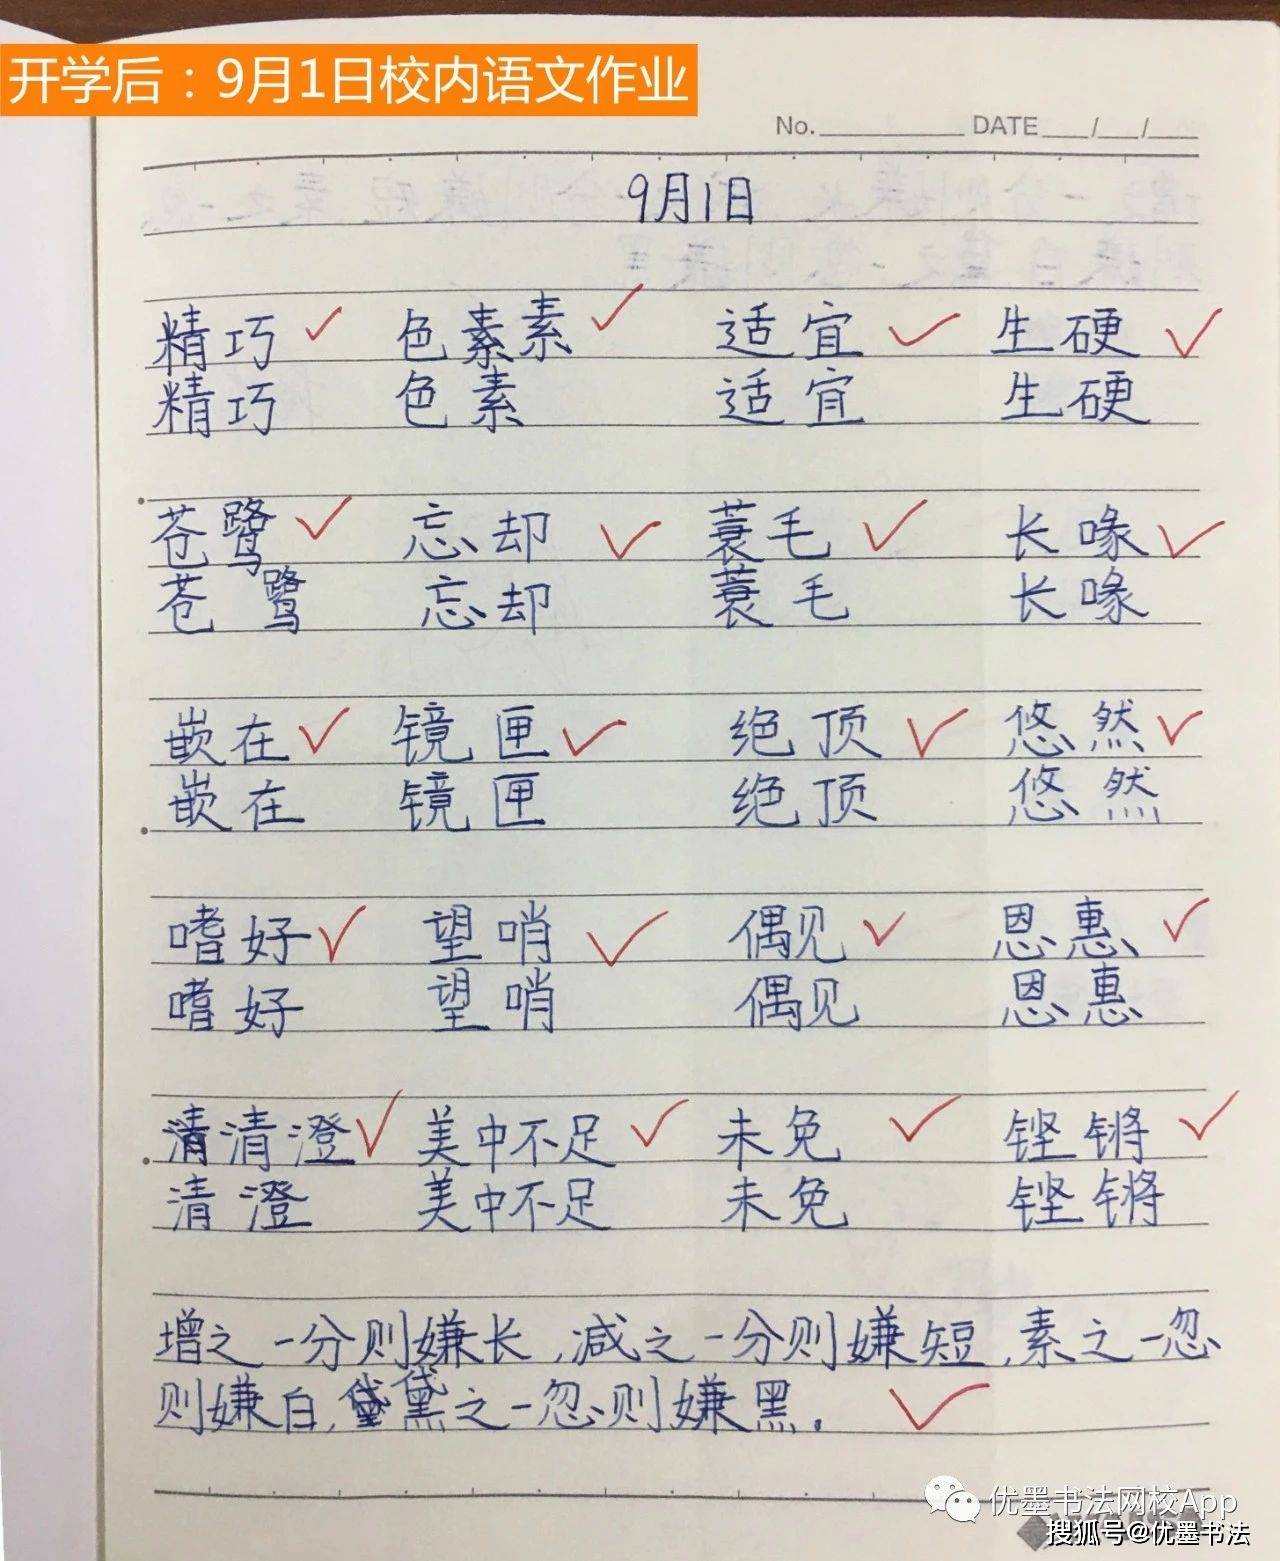 开学后：9月1日校内语文作业
No. DATE / /
9月1日
精巧 色素素 适宜 生硬
精巧 色素 适宜 生硬
苍鹭 忘却 蓑毛 长喙
苍鹭 忘却 蓑毛 长喙
嵌在 镜匣 绝顶 悠然
嵌在 镜匣 绝顶 悠然
嗜好 望哨 偶见 恩惠
嗜好 望哨 偶见 恩惠
清清澄 美中不足 未免 铿锵
清澄 美中不足 未免 铿锵
增之一分则嫌长,减之一分则嫌短,素之一忽
则嫌白,黛黛之一忽则嫌黑。
优墨书法网校App
搜狐号@优墨书法